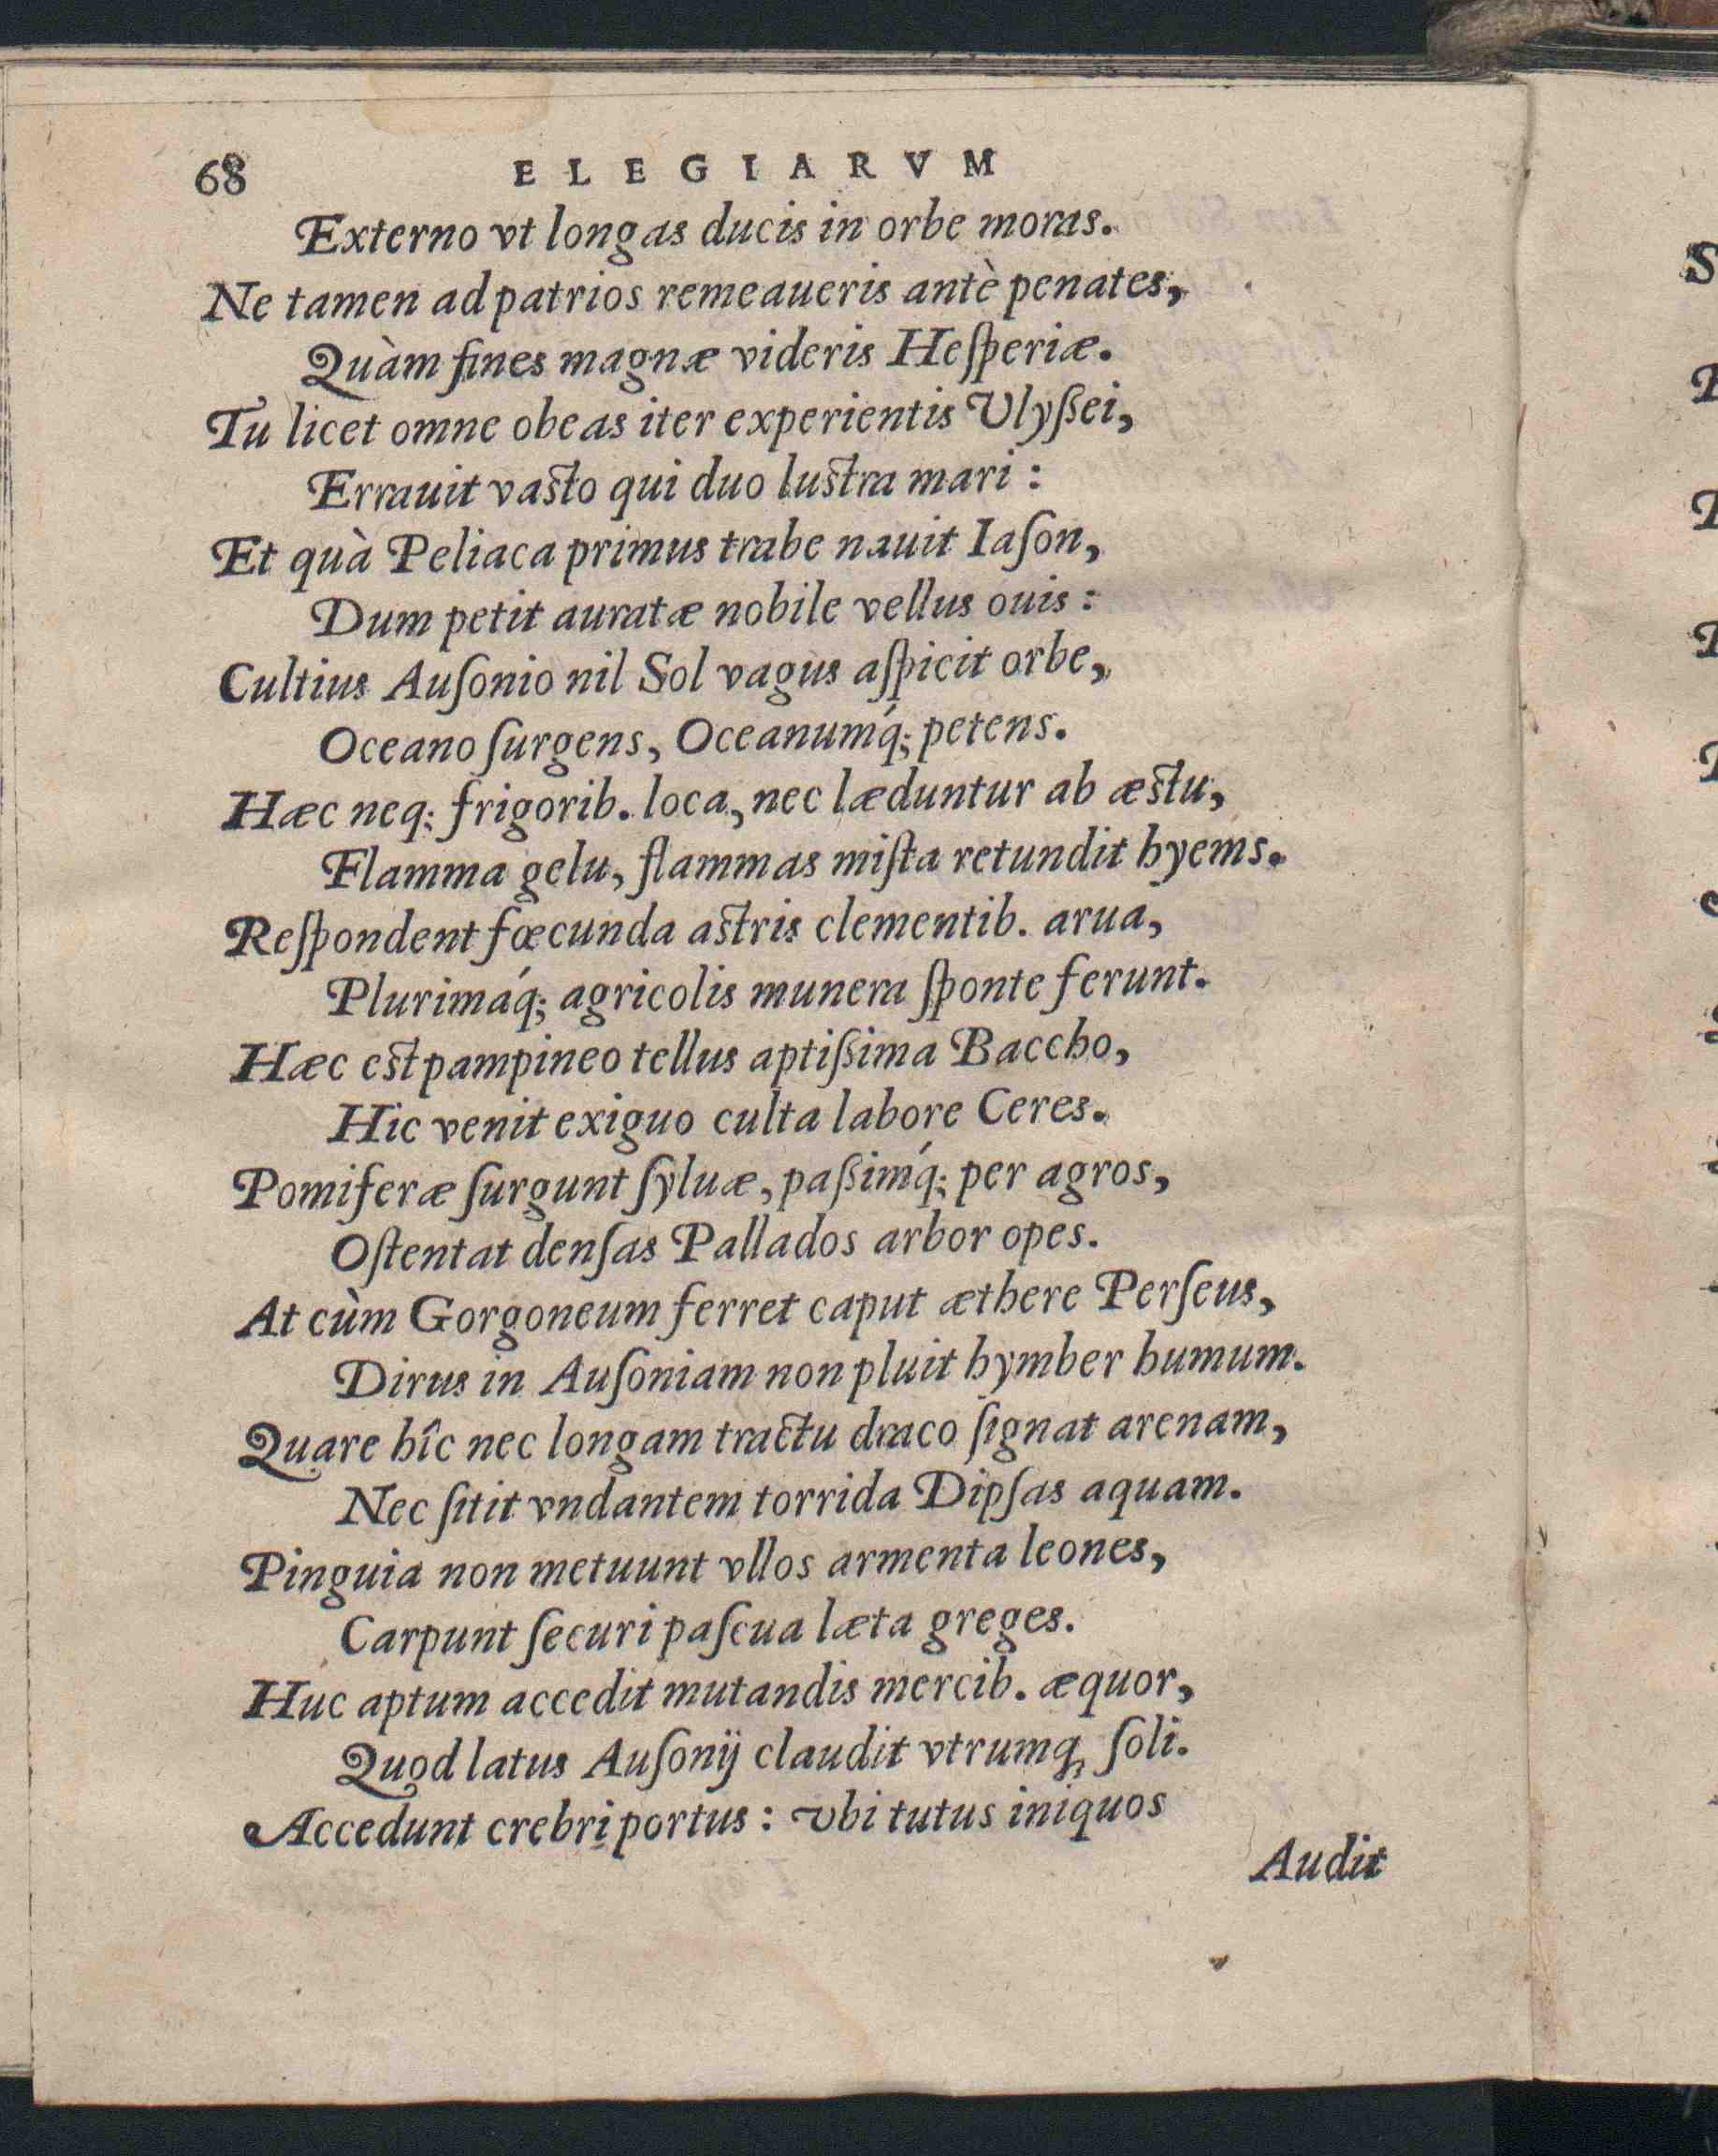 68 ELEGIARVM
Externo vt longas ducis in orbe moras.
Ne tamen ad patrios remeaueris antè penates,
Quàm fines magnæ videris Heſperiæ.
Tu licet omne obeas iter experientis Vlyßei,
Errauit vasto qui duo lustra mari:
Et quà Peliaca primus trabe nauit Iaſon,
Dum petit auratæ nobile vellus ouis:
Cultius Auſonio nil Sol vagus aſpicit orbe,
Oceano ſurgens, Oceanumq́; petens.
Hæc neq; frigorib. loca, nec læduntur ab æstu,
Flamma gelu, flammas miſta retundit hyems.
Reſpondent fœcunda astris clementib. arua,
Plurimaq́; agricolis munera ſponte ferunt.
Hæc est pampineo tellus aptißima Baccho,
Hic venit exiguo culta labore Ceres.
Pomiferæ ſurgunt ſyluæ, paßimq́; per agros,
Oſtentat denſas Pallados arbor opes.
At cùm Gorgoneum ferret caput æthere Perſeus,
Dirus in Auſoniam non pluit hymber humum.
Quare hîc nec longam tractu draco ſignat arenam,
Nec ſitit vndantem torrida Dipſas aquam.
Pinguia non metuunt vllos armenta leones,
Carpunt ſecuri paſcua læta greges.
Huc aptum accedit mutandis mercib. æquor,
Quod latus Auſonij claudit vtrumq; ſoli.
Accedunt crebri portus: vbi tutus iniquos
Audit